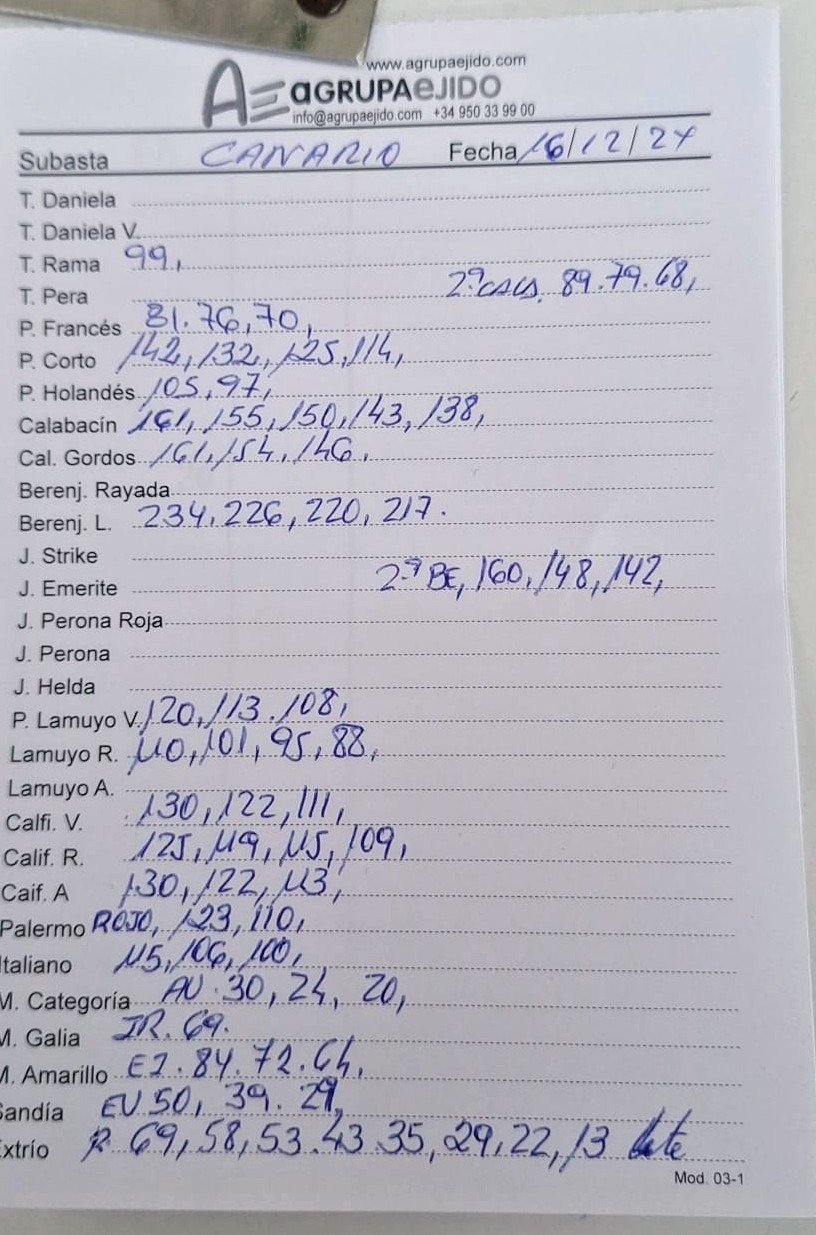 www.agrupaejido.com
AE aGRUPAeJIDO
info@agrupaejido.com +34 950 33 99 00
Subasta CANARIO Fecha 16/12/24
T. Daniela
T. Daniela V.
T. Rama 99,
T. Pera 2ª CALA. 89.79.68,
P. Francés 81.76,70,
P. Corto 142,132,125,114,
P. Holandés 105,97,
Calabacín 161,155,150,143,138,
Cal. Gordos 161,154,146.
Berenj. Rayada
Berenj. L. 234,226,220,217.
J. Strike
J. Emerite 2ª BE, 160,148,142,
J. Perona Roja
J. Perona
J. Helda
P. Lamuyo V. 120,113.108,
Lamuyo R. 110,101,95,88,
Lamuyo A.
Calfi. V. 130,122,111,
Calif. R. 125,119,115,109,
Caif. A 130,122,113,
Palermo ROJO, 123,110,
Italiano 115,106,100,
M. Categoría AU.30,24,20,
M. Galia IR.69.
M. Amarillo EJ.84.72.64.
Sandía EU 50,39.29,
Extrío R 69,58,53.43.35,29,22,13
Mod. 03-1